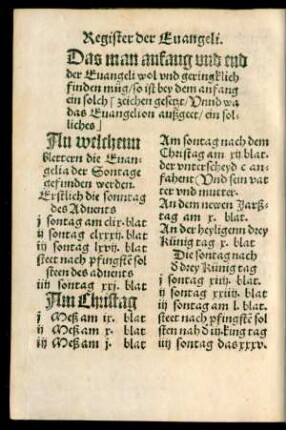 Register der Euangeli.
Das man anfang vnd end
der Euangeli wol vnd geringklich
finden müg / so ist bey dem anfang
ein solch ⌈ zeichen gesetzt / Vnnd wa
das Euangelion außgeet / ein sol-
liches ⌋
An welchemm
blettern die Euan-
gelia der Sontage
gefunden werden.
Erstlich die sonntag
des Aduents
j sontag am clix. blat
ij sontag clxxxij. blat
iij sontag lxxij. blat
steet nach pfingstē sol
steen des aduents
iiij sontag xxj. blat
Am Christag
j Meß am ix. blat
ij Meß am x. blat
iij Meß am j. blat
Am sontag nach dem
Christag am xij blat.
der vnterscheyd c an-
fahent / Vnd sein vat
ter vnd mutter.
An dem newen Jarß-
tag am x. blat.
An der heyligenn drey
Künig tag x. blat
Die sontag nach
d̕ drey Künig tag
j sontag xiiij. blat.
ij sontag xxiiij blat
iij sontag am l. blat.
steet nach pfingstē sol
sten nah d iij king tag
iiij sontag das xxxv.